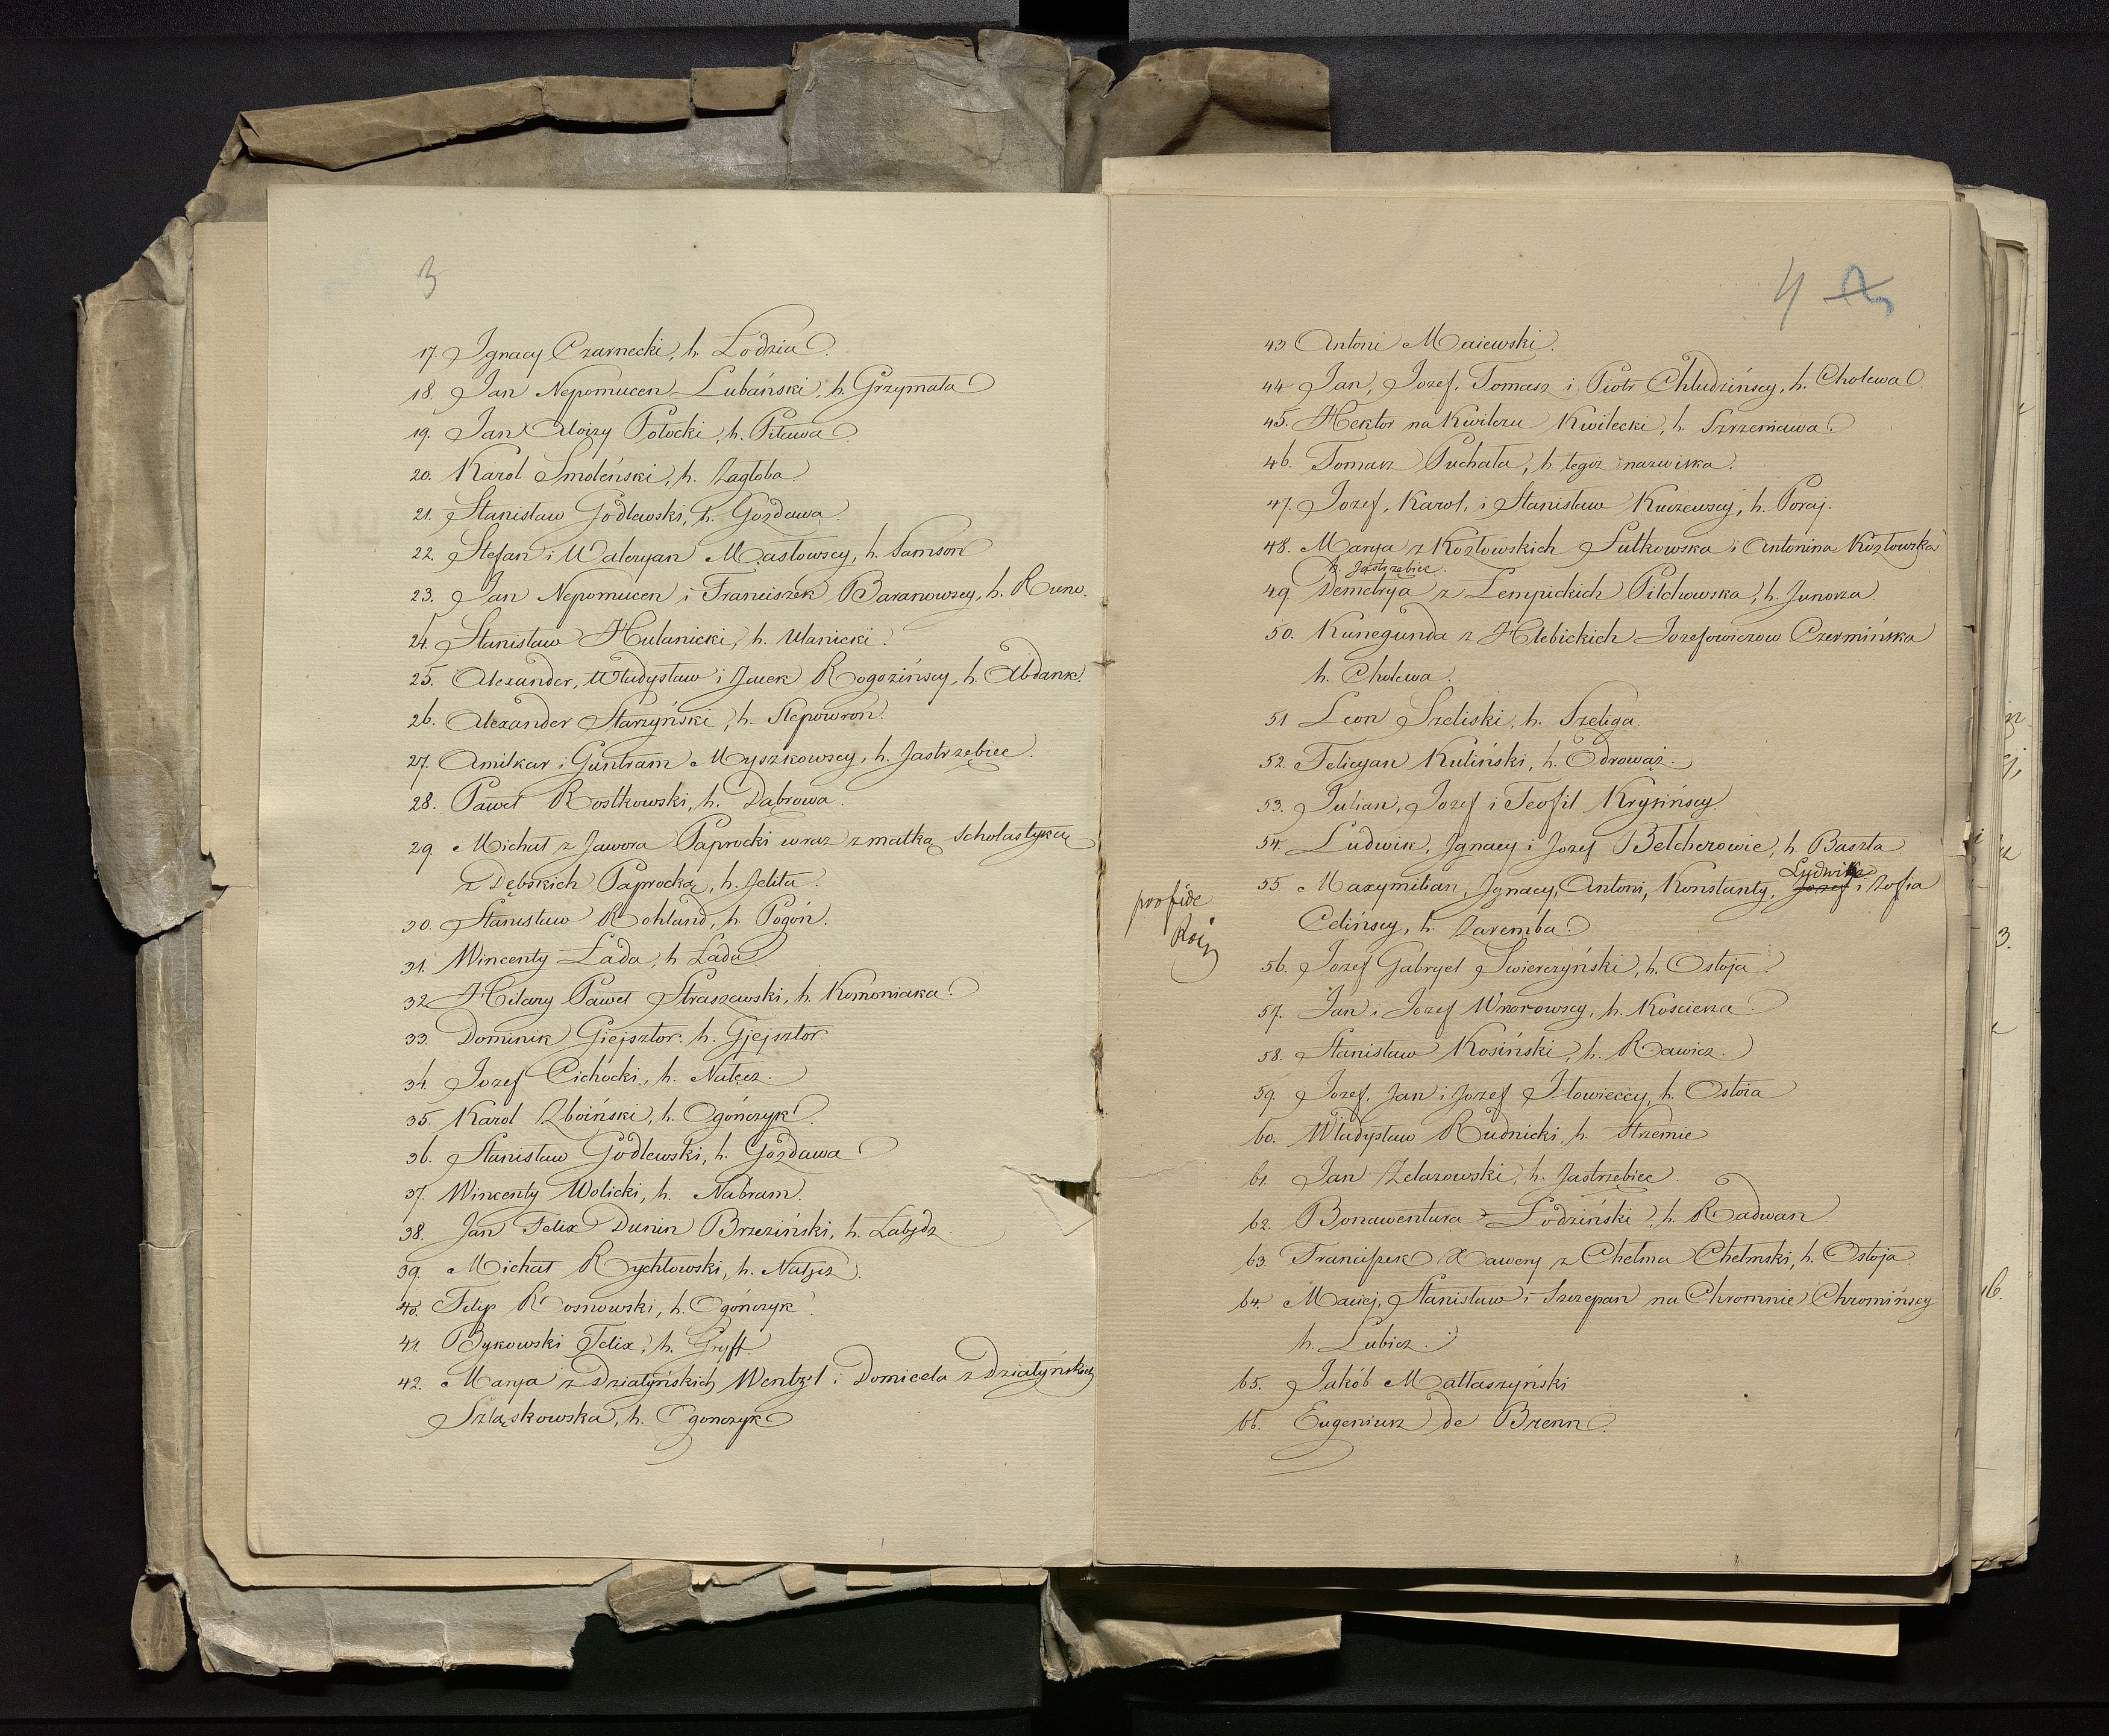 3
17. Ignacy Czarnecki, h. Lodzia.
18. Jan Nepomucen Lubański, h. Grzymała
19. Jan Aloizy Potocki, h. Pilawa
20. Karol Smoleński, h. Zagłoba.
21. Stanisław Godlewski, h. Gozdawa.
22. Stefan i Waleryan Masłowscy, h. Samson
23. Jan Nepomucen i Franciszek Baranowscy, h. Runo.
24. Stanisław Hulanicki, h. Ulanicki.
25. Alexander, Władysław i Jacek Rogozińscy, h. Abdank.
26. Alexander Starzyński, h. Slepowron.
27. Amilkar i Guntram Myszkowscy, h. Jastrzębiec.
28. Paweł Rostkowski, h. Dąbrowa.
29. Michał z Jawora Paprocki wraz z matką Scholastyką
z Dębskich Paprocką, h. Jelita.
30. Stanisław Rohland, h. Pogoń.
31. Wincenty Łada, h Łada
32 Hilary Paweł Straszewski, h. Komoniaka.
33. Dominik Giejsztor. h. Gjejsztor
34. Jozef Cichocki, h. Nałęcz.
35. Karol Zboiński, h. Ogończyk.
36. Stanisław Godlewski, h. Gozdawa
37. Wincenty Wolicki, h. Nabram.
38. Jan Felix Dunin Brzeziński, h. Łabędz
39. Michał Rychłowski, h. Nałęcz.
40. Filip Rosnowski, h. Ogończyk.
41. Bykowski Felix, h. Gryff.
42. Marya z Działyńskich Wentzel i Domicela z Działyńskich
Szląskowska, h. Ogonczyk
4
43. Antoni Maiewski.
44 Jan, Jozef, Tomasz i Piotr Chludzińscy, h. Cholewa.
45. Hektor na Kwilczu Kwilecki, h. Szrzeniawa.
46. Tomasz Puchała, h. tegoz nazwiska.
47. Jozef, Karol, i Stanisław Kuczewscy, h. Poraj.
48. Marya z Kozłowskich Sutkowska i Antonina Kozłowska
h. Jastrzębiec.
49 Demetrya z Lempickich Pilchowska, h. Junosza.
50. Kunegunda z Hlebickich Jozefowiczow Czermińska
h. Cholewa.
51 Leon Szeliski, h. Szeliga.
52. Felicyan Kuliński, h. Odrowąż.
53. Julian, Jozef i Teofil Krysińscy.
54. Ludwik, Ignacy i Jozef Belcherowie, h Baszta
Ludwika
55. Maxymilian, Ignacy, Antoni, Konstanty, Jozef i Zofia
pro fide
Celińscy, h. Zaremba
56. Jozef Gabryel Swierczyński, h. Ostoja.
57. Jan i Jozef Wnorowscy, h. Kosciesza
58. Stanisław Kosiński, h. Rawicz.
59. Jozef, Jan i Jozef Iłowieccy, h. Ostoia
60. Władysław Rudnicki, h. Strzemie
61. Jan Zelazowski, h. Jastrzębiec.
62. Bonawentura Łodziński, h. Radwan.
63. Franciszek Xawery z Chełma Chełmski, h. Ostoja
64. Maciej, Stanisław i Szczepan na Chromnie Chromińscy
h. Lubicz.
65. Jakób Małłaszyński
66. Eugeniusz de Brenn.